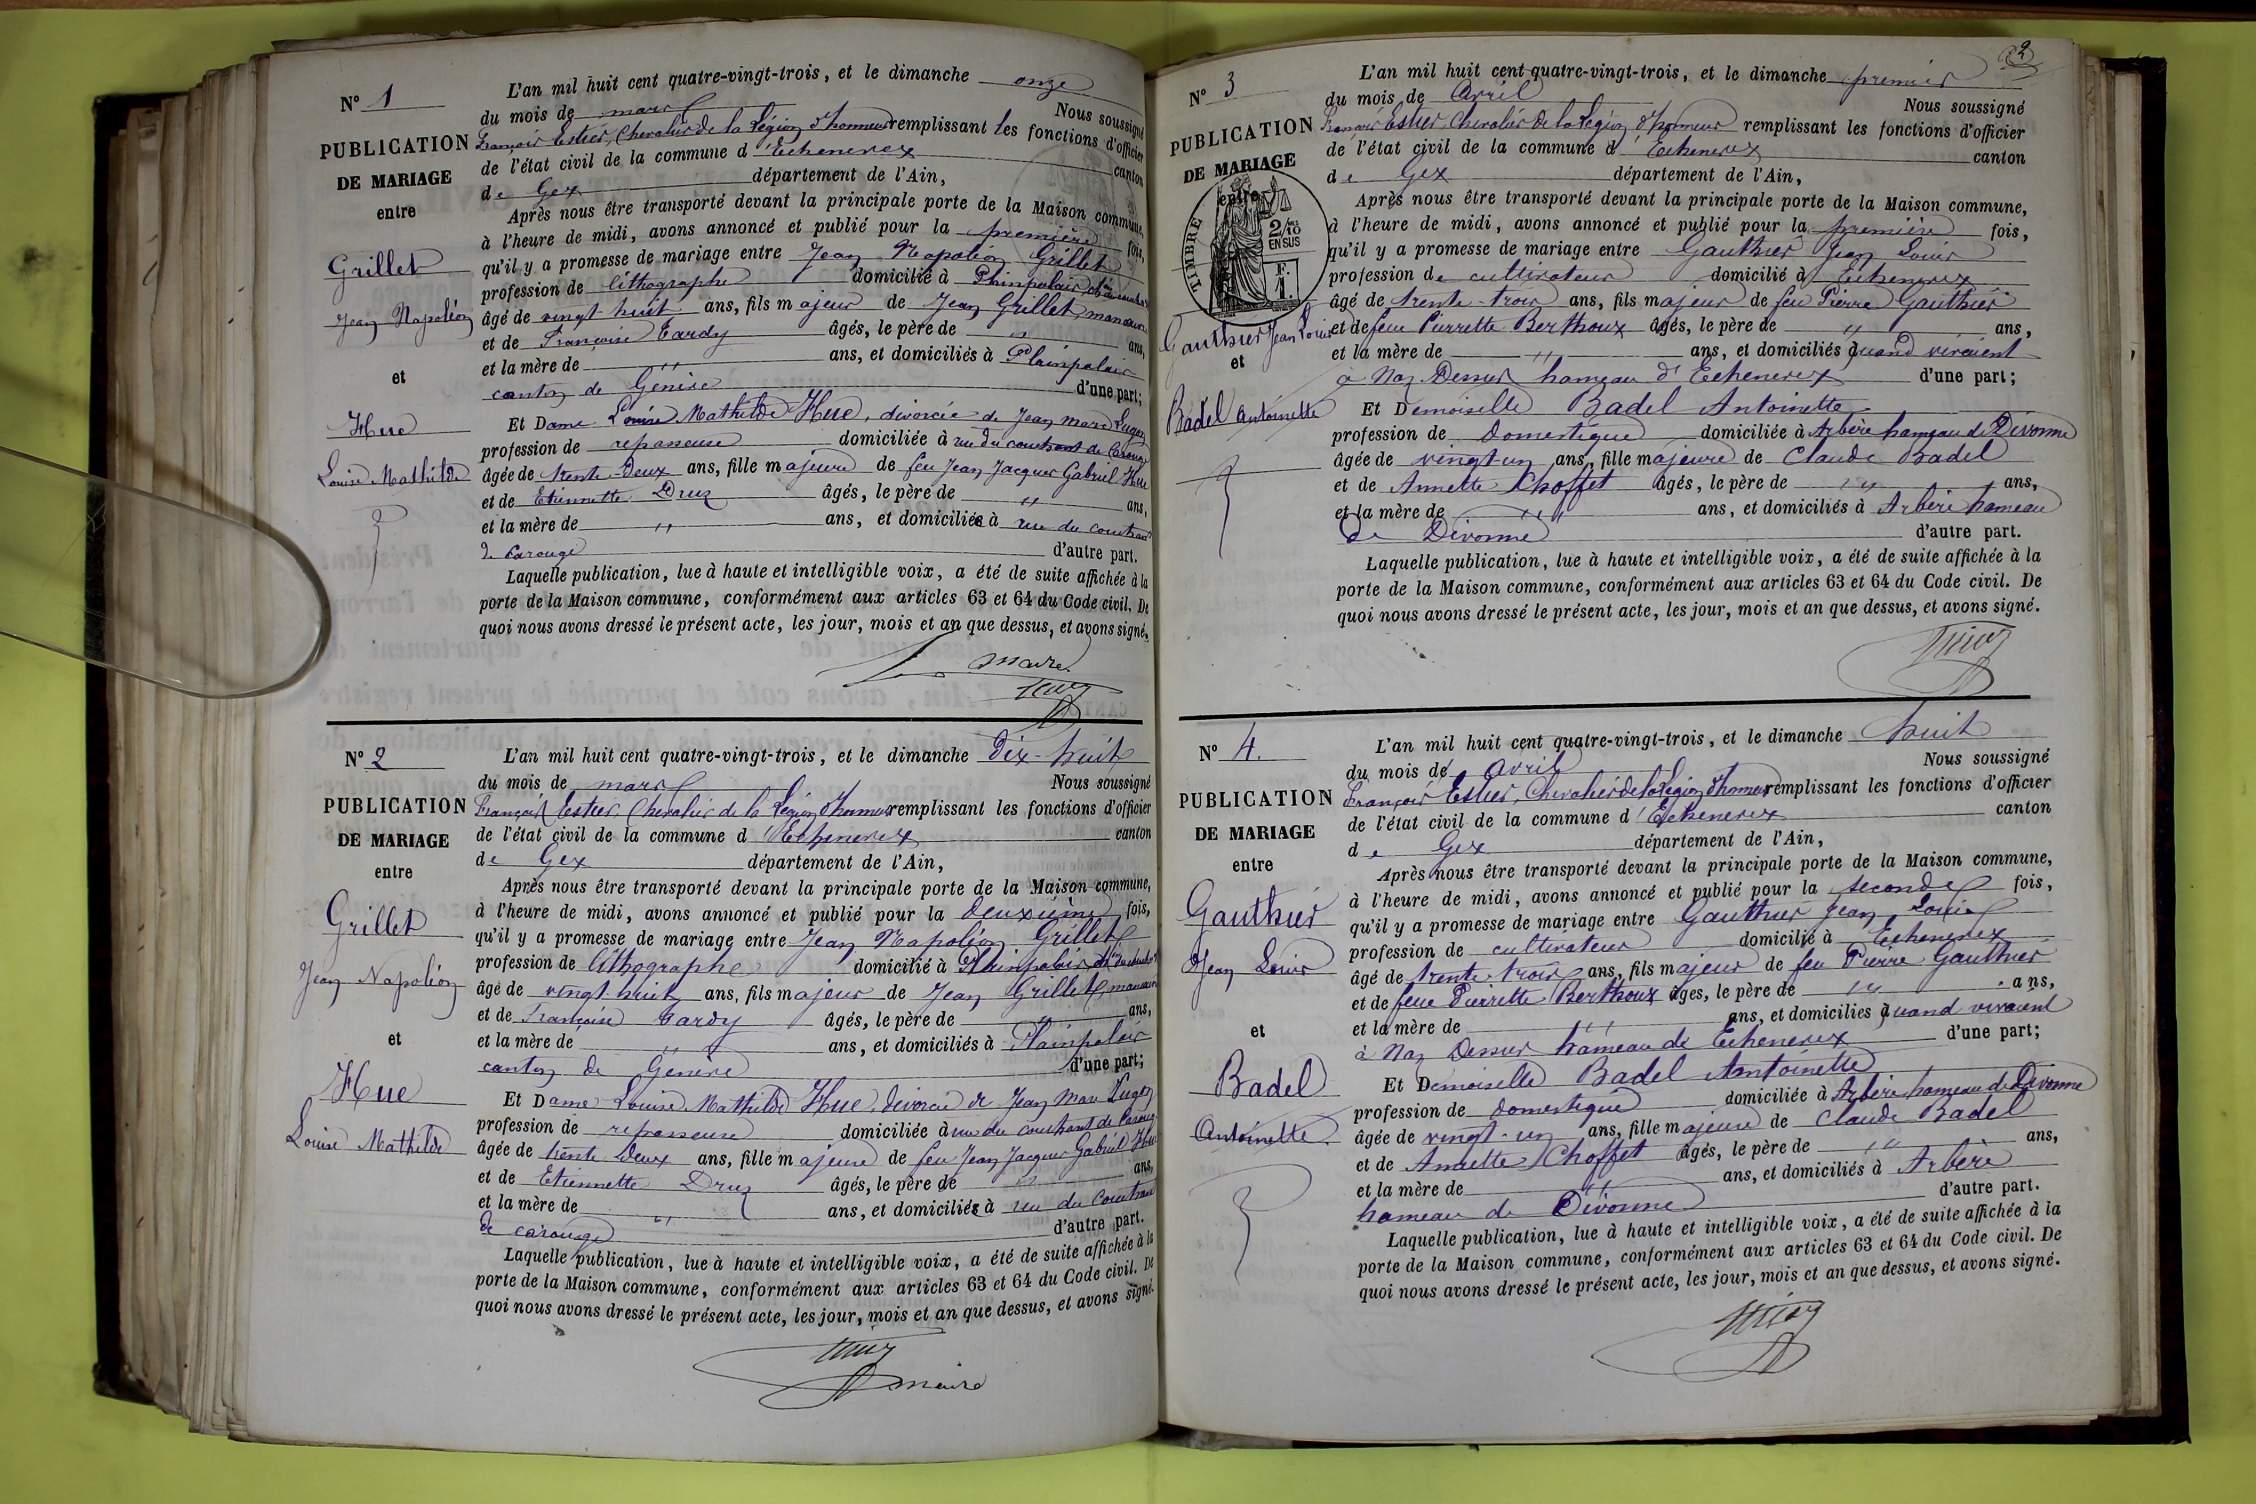 N° 1
PUBLICATION
DE MARIAGE
entre
Grillet
Jean Napoléon
et
Hue
Louise Mathilde
L'an mil huit cent quatre-vingt-trois, et le dimanche onze
du mois de mars Nous soussigné
François Estier, Chevalier de la Légion d'honneur remplissant les fonctions d'officier
de l'état civil de la commune d'Echenevex canton
de Gex département de l'Ain,
Après nous être transporté devant la principale porte de la Maison commune,
à l'heure de midi, avons annoncé et publié pour la première fois,
qu'il y a promesse de mariage entre Jean Napoléon Grillet
profession de lithographe domicilié à Plainpalais
âgé de vingt-huit ans, fils majeur de Jean Grillet
et de Françoise Tardy âgés, le père de " ans,
et la mère de " ans, et domiciliés à Plainpalais
canton de Genève d'une part;
Et Dame Louise Mathilde Hue, divorcée de Jean Marc Lugon
profession de repasseuse domiciliée à rue du couchant de Carouge
âgée de trente-deux ans, fille majeure de feu Jean Jacques Gabriel Hue
et de Etiennette Druz âgés, le père de " ans,
et la mère de " ans, et domiciliés à rue du couchant
de Carouge d'autre part.
Laquelle publication, lue à haute et intelligible voix, a été de suite affichée à la
porte de la Maison commune, conformément aux articles 63 et 64 du Code civil. De
quoi nous avons dressé le présent acte, les jour, mois et an que dessus, et avons signé.
maire
N° 2
PUBLICATION
DE MARIAGE
entre
Grillet
Jean Napoléon
et
Hue
Louise Mathilde
L'an mil huit cent quatre-vingt-trois, et le dimanche dix-huit
du mois de mars Nous soussigné
François Estier, Chevalier de la Légion d'honneur remplissant les fonctions d'officier
de l'état civil de la commune d'Echenevex canton
de Gex département de l'Ain,
Après nous être transporté devant la principale porte de la Maison commune,
à l'heure de midi, avons annoncé et publié pour la deuxième fois,
qu'il y a promesse de mariage entre Jean Napoléon Grillet
profession de lithographe domicilié à Plainpalais
âgé de vingt-huit ans, fils majeur de Jean Grillet
et de Françoise Tardy âgés, le père de " ans,
et la mère de " ans, et domiciliés à Plainpalais
canton de Genève d'une part;
Et Dame Louise Mathilde Hue, divorcée de Jean Marc Lugon
profession de repasseuse domiciliée à rue du couchant de Carouge
âgée de trente deux ans, fille majeure de feu Jean Jacques Gabriel Hue
et de Etiennette Druz âgés, le père de " ans,
et la mère de " ans, et domiciliés à rue du couchant
de carouge d'autre part.
Laquelle publication, lue à haute et intelligible voix, a été de suite affichée à la
porte de la Maison commune, conformément aux articles 63 et 64 du Code civil. De
quoi nous avons dressé le présent acte, les jour, mois et an que dessus, et avons signé.
maire
2
N° 3
PUBLICATION
DE MARIAGE
entre
TIMBRE
2/10
EN SUS
F.
1.
Gauthier Jean Louis
et
Badel Antoinette
L'an mil huit cent quatre-vingt-trois, et le dimanche premier
du mois de Avril Nous soussigné
François Estier, Chevalier de la Légion d'honneur remplissant les fonctions d'officier
de l'état civil de la commune d'Echenevex canton
de Gex département de l'Ain,
Après nous être transporté devant la principale porte de la Maison commune,
à l'heure de midi, avons annoncé et publié pour la première fois,
qu'il y a promesse de mariage entre Gauthier Jean Louis
profession de cultivateur domicilié à Echenevex
âgé de trente-trois ans, fils majeur de feu Pierre Gauthier
et de feue Pierrette Berthoux âgés, le père de " ans,
et la mère de " ans, et domiciliés quand vivaient
à Naz Dessus hameau d'Echenevex d'une part;
Et Demoiselle Badel Antoinette
profession de domestique domiciliée à Arbère hameau de Divonne
âgée de vingt-un ans, fille majeure de Claude Badel
et de Annette Choffet âgés, le père de " ans,
et la mère de " ans, et domiciliés à Arbère hameau
de Divonne d'autre part.
Laquelle publication, lue à haute et intelligible voix, a été de suite affichée à la
porte de la Maison commune, conformément aux articles 63 et 64 du Code civil. De
quoi nous avons dressé le présent acte, les jour, mois et an que dessus, et avons signé.
N° 4.
PUBLICATION
DE MARIAGE
entre
Gauthier
Jean Louis
et
Badel
Antoinette.
L'an mil huit cent quatre-vingt-trois, et le dimanche huit
du mois de avril Nous soussigné
François Estier, Chevalier de la Légion d'honneur remplissant les fonctions d'officier
de l'état civil de la commune d'Echenevex canton
de Gex département de l'Ain,
Après nous être transporté devant la principale porte de la Maison commune,
à l'heure de midi, avons annoncé et publié pour la seconde fois,
qu'il y a promesse de mariage entre Gauthier Jean Louis
profession de cultivateur domicilié à Echenevex
âgé de trente-trois ans, fils majeur de feu Pierre Gauthier
et de feue Pierrette Berthoux âgés, le père de " ans,
et la mère de " ans, et domiciliés quand vivaient
à Naz Dessus hameau de Echenevex d'une part;
Et Demoiselle Badel Antoinette
profession de domestique domiciliée à Arbère hameau de Divonne
âgée de vingt-un ans, fille majeure de Claude Badel
et de Annette Choffet âgés, le père de " ans,
et la mère de " ans, et domiciliés à Arbère
hameau de Divonne d'autre part.
Laquelle publication, lue à haute et intelligible voix, a été de suite affichée à la
porte de la Maison commune, conformément aux articles 63 et 64 du Code civil. De
quoi nous avons dressé le présent acte, les jour, mois et an que dessus, et avons signé.